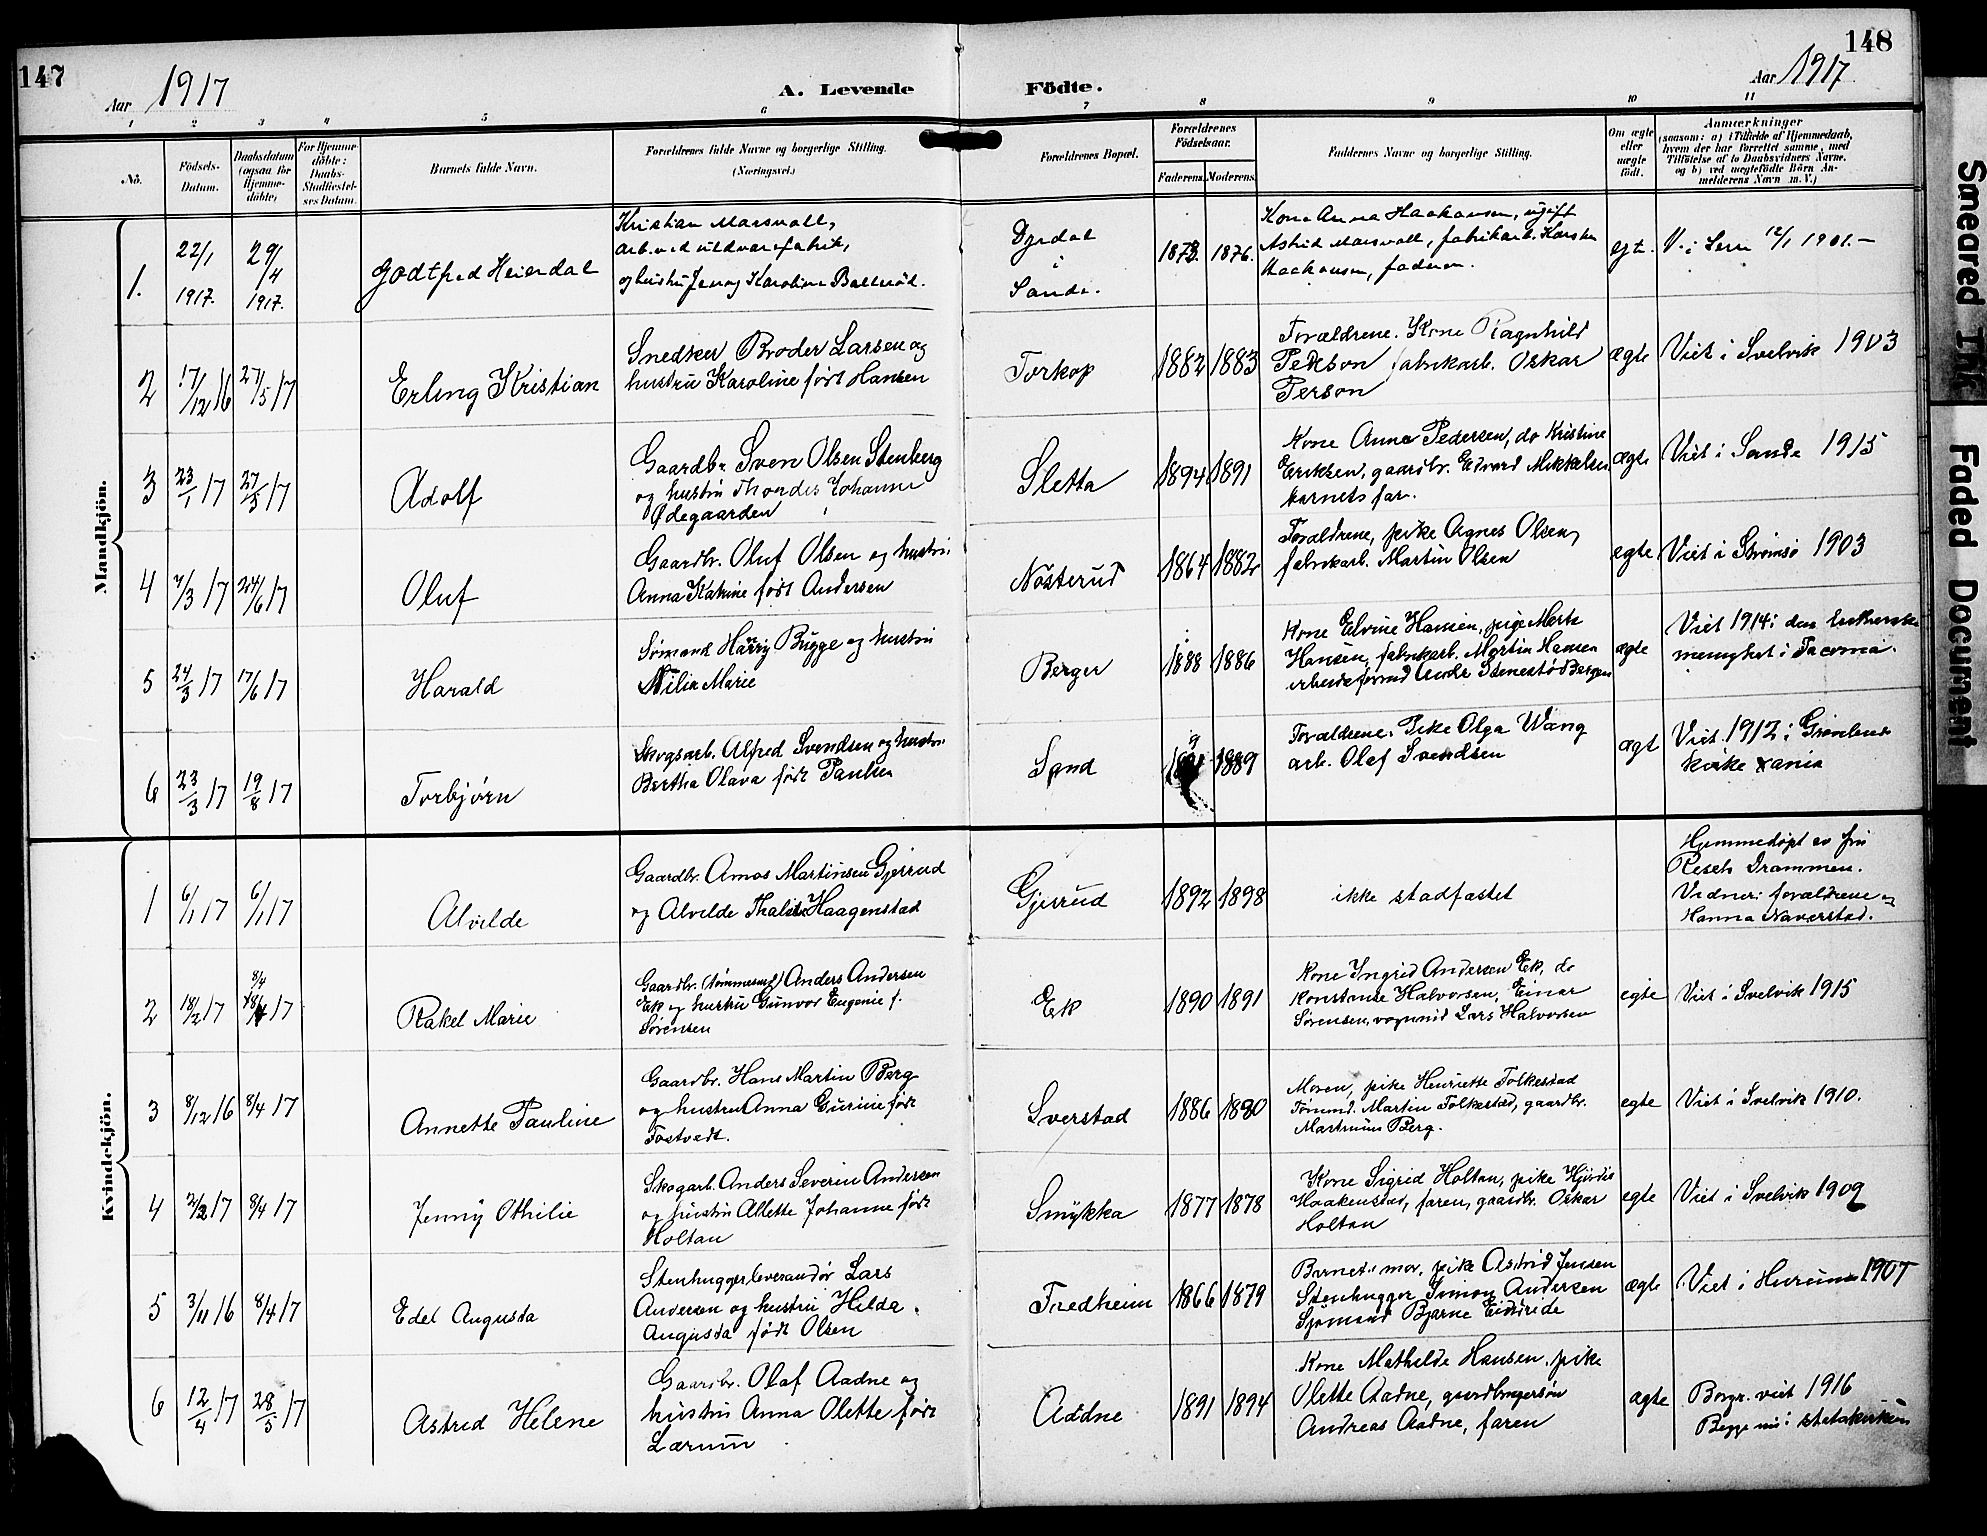 147
Aar 1917
A. Levende Födte.
148
Aar 1917
1 2 3 4 5 6 7 8 9 10 11
No.
Födsels-Datum.
Daabsdatum (ogsaa for Hjemme-döbte)
For Hjemme-döbte: Daabs-Stadfæstel-ses Datum.
Barnets fulde Navn.
Forældrenes fulde Navne og borgerlige Stilling. (Næringsvei.)
Forældrenes Bopæl.
Forældrenes Födselsaar.
Faderens. Moderens.
Faddernes Navne og borgerlige Stilling.
Om ægte eller uægte födt.
Anmærkninger
(saasom: a) i Tilfælde af Hjemmedaab,
hvem der har forrettet samme, med
Tilföielse af to Daabsvidners Navne,
og b) ved uægtefödte Börn An-
melderens Navn m. V.)
Mandkjön.
1. 22/1 1917. 29/4 1917.
Godtfred Heierdal
Kristian Marsvall,
arb. ved uldvarefabrik,
og hustru Jenny Karoline Ballerød.
Dyrdal
i
Sande.
1873. 1876.
Kone Anna Haakonsen, ugift
Astrid Marsvall, fabrikarb. Karsten
Haakonsen, faderen.
egt.
V. i Sem 12/1 1901.
2 17/12 16 27/5 17
Erling Kristian
Snedker Broder Larsen og
hustru Karoline født Hansen
Torkop
1882 1883
Forældrene. Kone Ragnhild
Person fabrikarb. Oskar
Person
ægte
Viet i Svelvik 1903
3 23/1 17 27/5 17
Adolf
Gaardbr. Sven Olsen Stenberg
og hustru Thordis Johanne
Ødegaarden
Sletta
1894 1891
Kone Anna Pedersen, do Kristine
Eriksen, gaardbr. Edvard Mikkelsen
barnets far.
ægte
Viet i Sande 1915
4 7/3 17 24/6 17
Oluf
Gaardbr. Oluf Olsen og hustru
Anna Katrine født Andersen
Nøsterud
1864 1882
Forældrene, pike Agnes Olsen,
fabrikarb. Martin Olsen
egte
Viet i Strømsø 1903
5 24/3 17 17/6 17
Harald
Sømand Harry Bugge og hustru
Nilia Marie
Berger
1888 1886
Kone Elvine Hansen, pige Marta
Hansen, fabrikarb. Martin Hansen
ægte
Viet 1914 i den lutherske
menighet i Tacoma.
6 23/3 17 19/8 17
Torbjørn
Skogsarb. Alfred Svendsen og hustru
Bertha Olava født Paulsen
Sand
1889
Forældrene. Pike Olga Wang
arb. Olaf Svendsen
ægt
Viet 1912 i Grønlands
kirke Xania
Kvindekjön.
1 6/1 17 6/1 17
Alvilde
Gaardbr. Amos Martinsen Gjerrud
og Alvilde Haagenstad
Gjerrud
1892 1898
ikke stadfæstet
Hjemmedøpt av fru
Resch Drammen.
Vidner: forældrene og
Hanna Naverstad.
2 18/2 17 8/4 17
Rakel Marie
Gaardbr. (tømmermd) Anders Andersen
Ek og hustru Gunvor Eugenie f.
Sørensen
Ek
1890 1891
Kone Ingrid Andersen Ek, do
Konstanse Halvorsen, Einar
Sørensen, vognmd Lars Halvorsen
egte
Viet i Svelvik 1915
3 8/12 16 8/4 17
Annette Pauline
Gaardbr. Hans Martin Berg
og hustru Anna Gurine født
Tostvedt.
Sverstad
1886 1890
Moren, pike Henriette Folkestad
Tømmd. Martin Folkestad, gaardbr.
Martinius Berg.
egte
Viet i Svelvik 1910.
4 2/2 17 8/4 17
Jenny Othilie
Skogarb. Anders Severin Andersen
og hustru Alette Johanne født
Holtan
Smykka
1877 1878
Kone Sigrid Holtan, pike Hjørdis
Haakenstad, faren, gaardbr. Oskar
Holtan
egte
Viet i Svelvik 1909
5 3/11 16 8/4 17
Edel Augusta
Stenhuggerleverandør Lars
Andersen og hustru Hilda
Augusta født Olsen
Fredheim
1866 1879
Barnets mor, pike Astrid Jensen
Stenhugger Simon Andersen
Sjømand Bjarne
ægte
Viet i Hurum 1907
6 12/4 17 28/5 17
Astrid Helene
Gaardbr. Olaf Aadne og
hustru Anna Olette født
Lærum
Addne
1891 1894
Kone Mathilde Hansen, pike
Olette Aadne, gaardbrugersøn
Andreas Aadne, faren
ægte
Borgr. viet 1916
Begge nu i statskirken
Smeared Ink
Faded Document